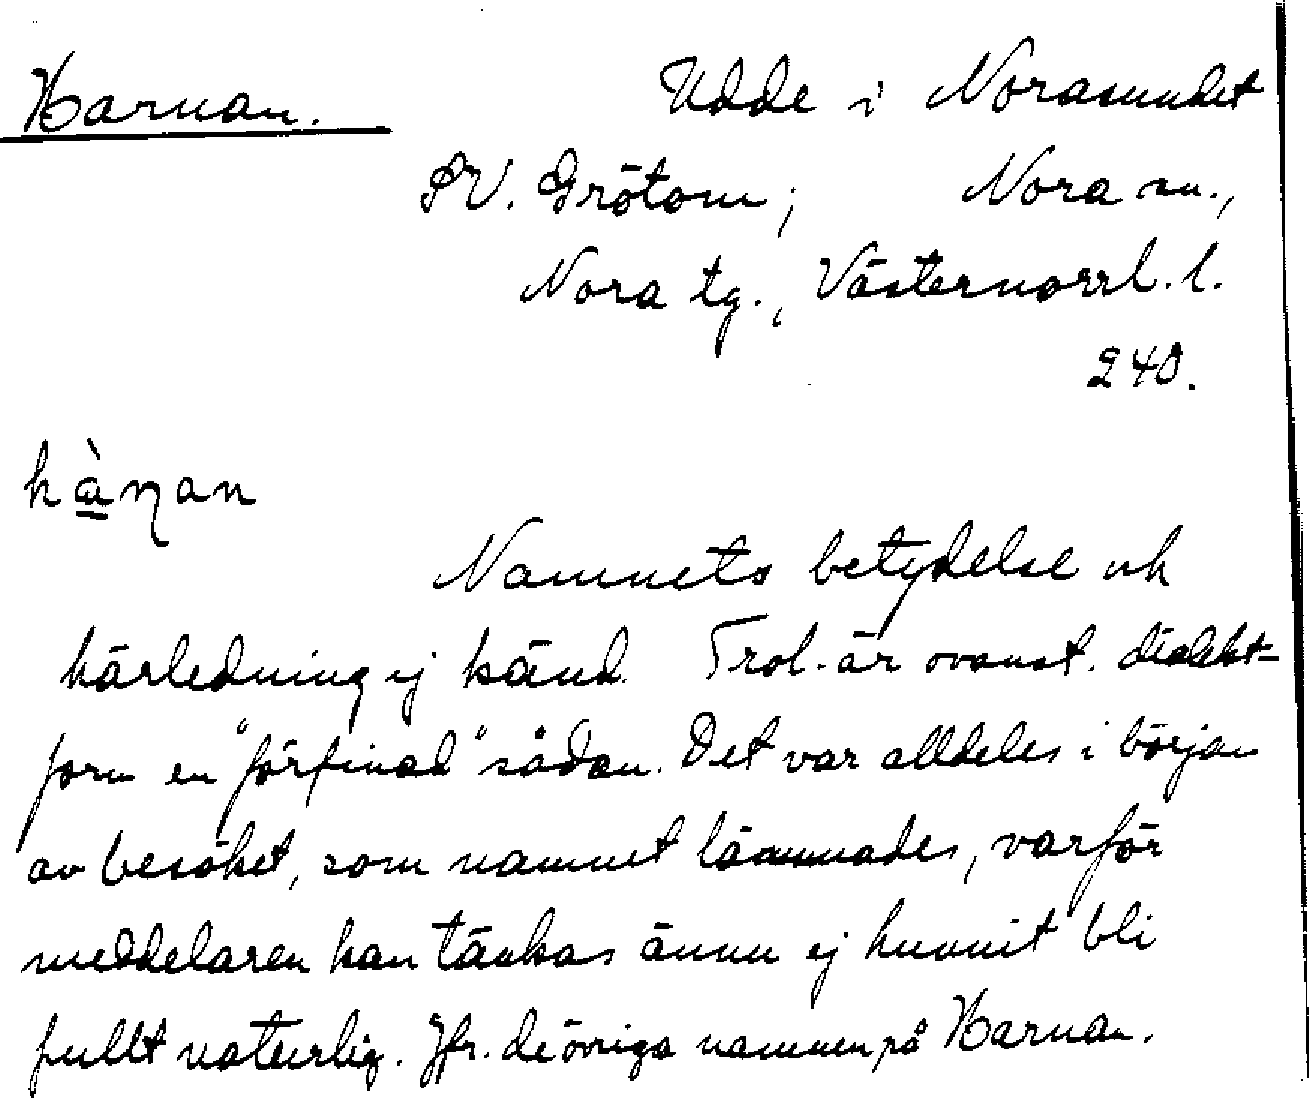 Harnan.
Udde i Norasundet
SV. Grötom; Nora sn.,
Nora tg., Västernorrl. l.
240.
hàɳan
Namnets betydelse och
härledning ej känd. Trol. är ovanst. dialekt-
form en "förfinad" sådan. Det var alldeles i början
av besöket, som namnet lämnades, varför
meddelaren kan tänkas ännu ej hunnit bli
fullt naturlig. Jfr. de övriga namnen på Harnan.